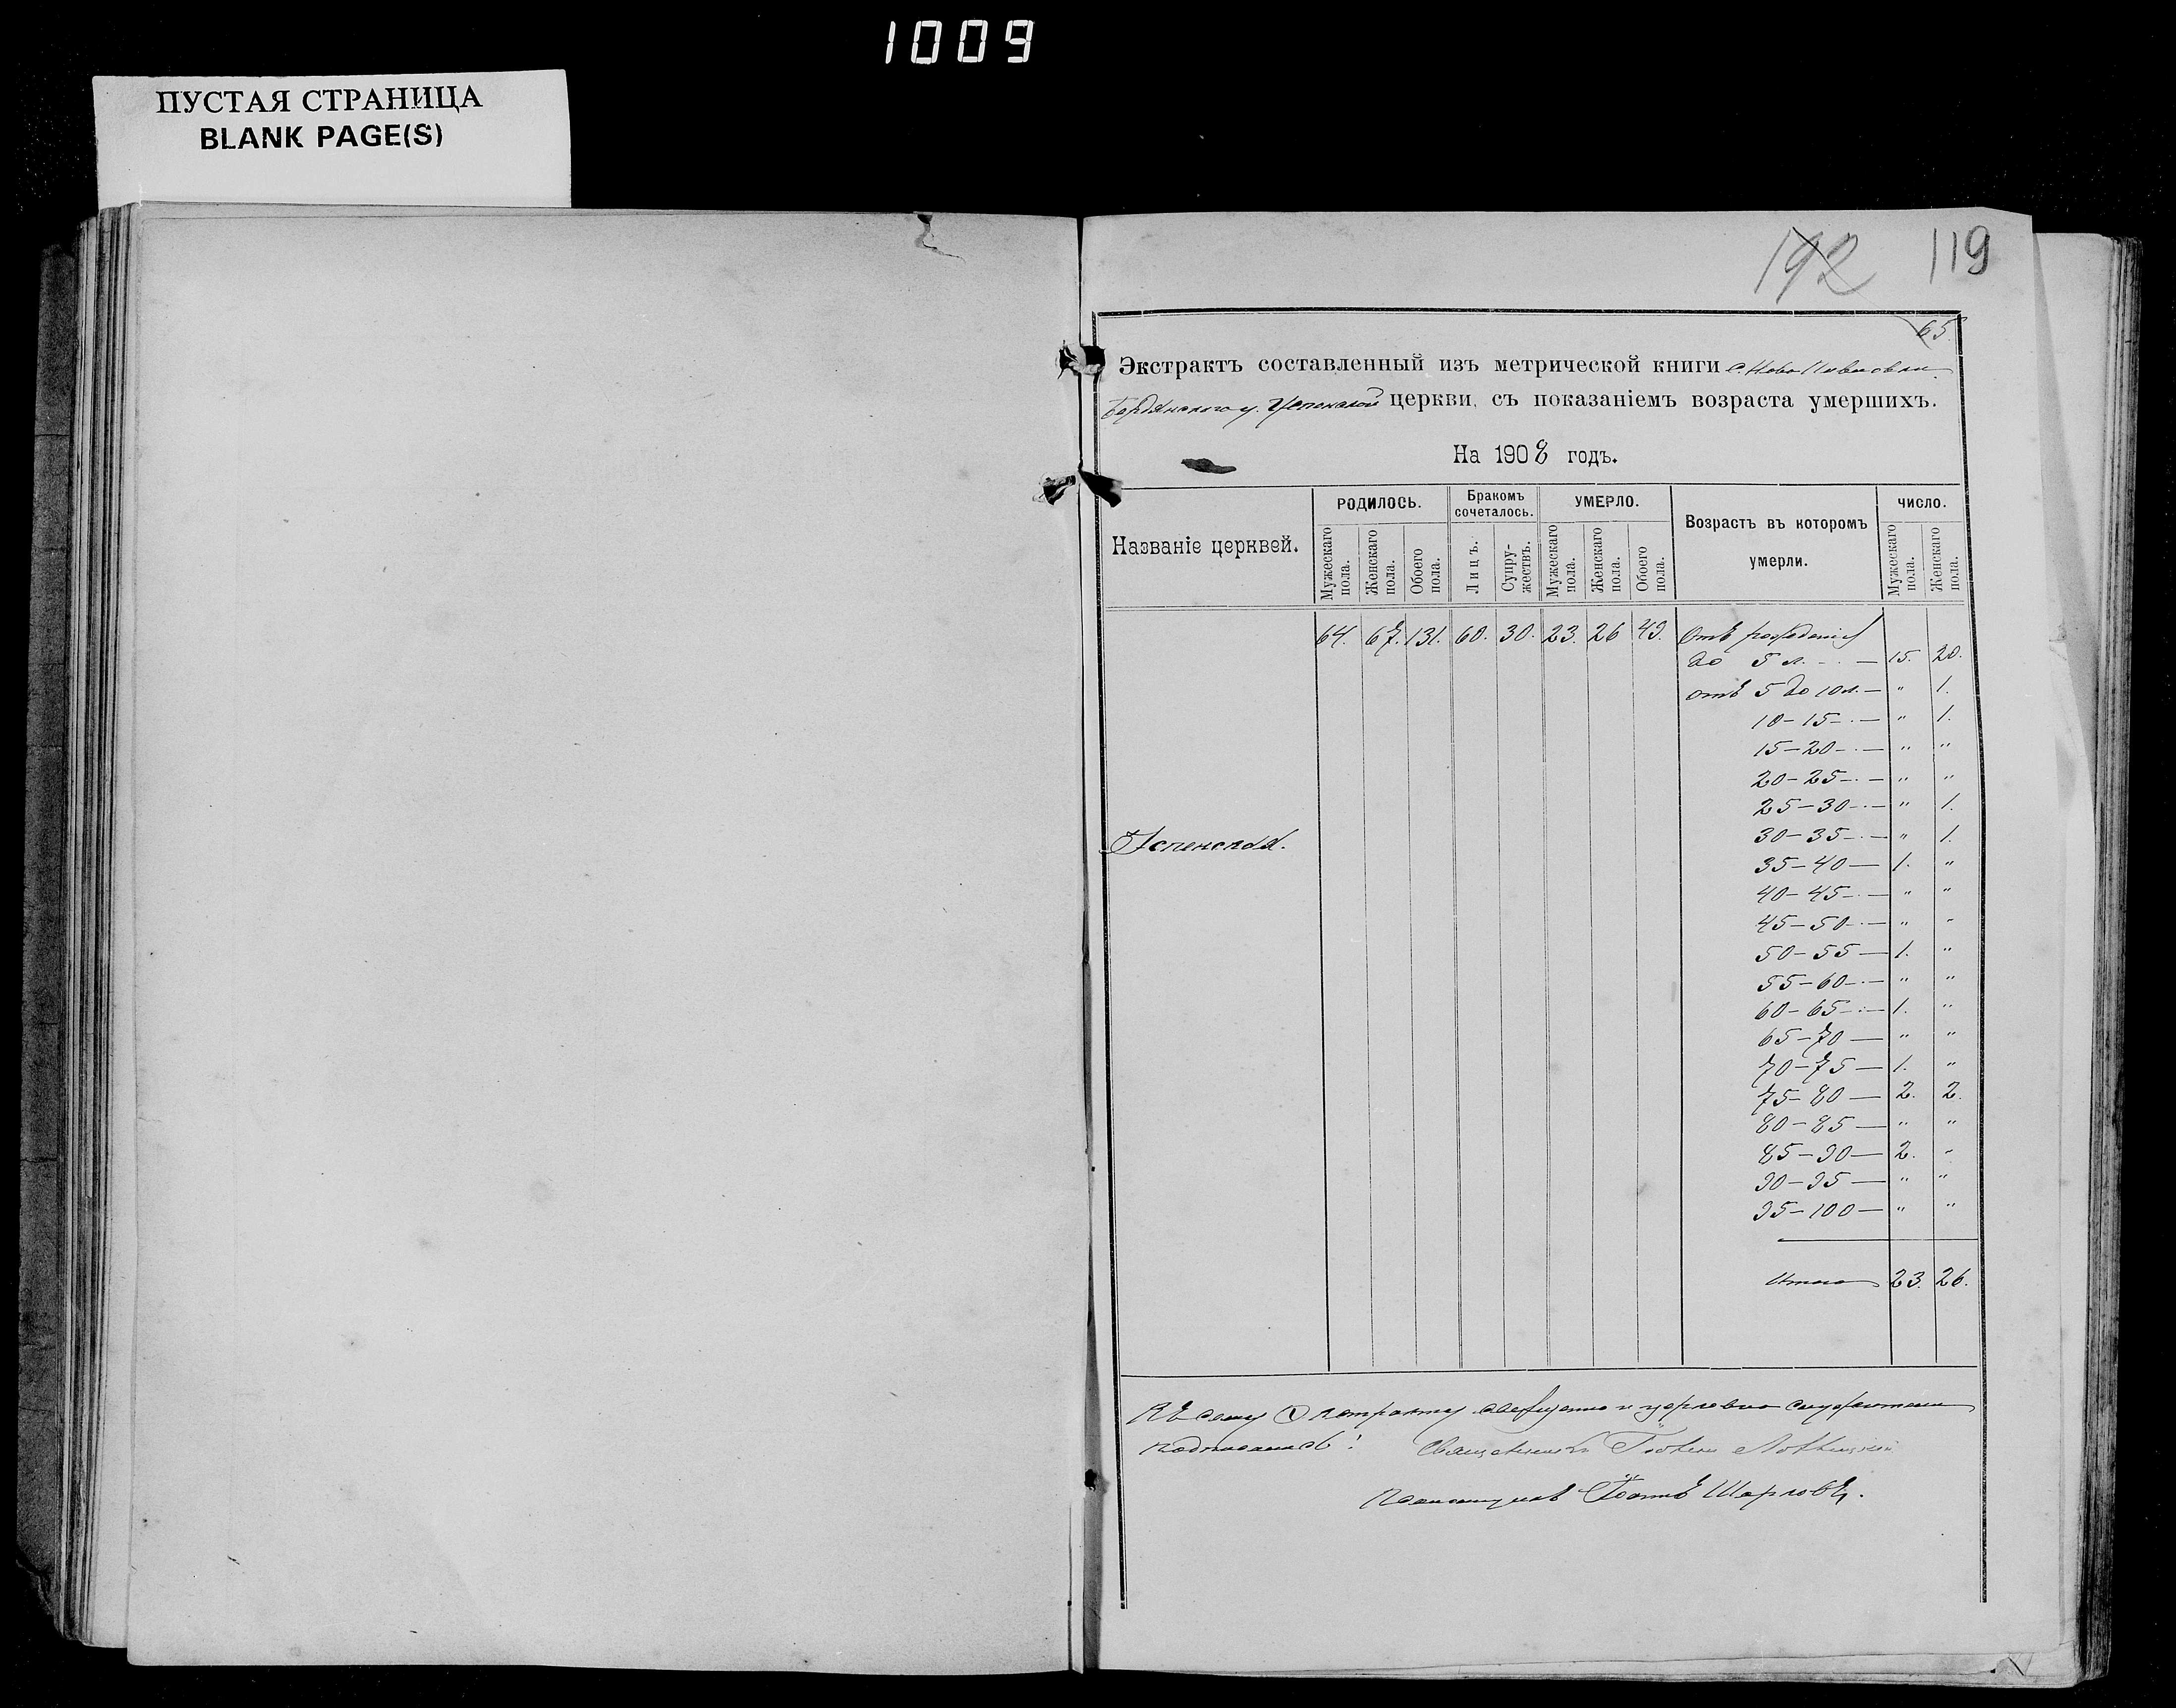 1009
ПУСТАЯ СТРАНИЦА
BLANK PAGE(S)
192 119
65
Экстрактъ составленный изъ метрической книги с. Ново Павловки
Бердянскаго у. Успенской церкви, съ показаніемъ возраста умершихъ.
На 1908 годъ.
Названіе церквей. РОДИЛОСЬ. Бракомъ сочеталось. УМЕРЛО. Возрастъ въ которомъ умерли. ЧИСЛО.
Мужескаго пола. Женскаго пола. Обоего пола. Лицъ. Супружествъ. Мужескаго пола. Женскаго пола. Обоего пола. Мужескаго пола. Женскаго пола.
64. 67. 131. 60. 30. 23. 26 49. Отъ рожденія
до 5 л. - . — 15. 20.
отъ 5 до 10 л. — " 1.
10 - 15 - . — " 1.
15 - 20 - . — " "
20 - 25 - . — " "
25 - 30 - . — " 1.
Успенская. 30 - 35 - . — " 1.
35 - 40 — 1. "
40 - 45 - . — " "
45 - 50 - . — " "
50 - 55 — 1. "
55 - 60 - . — " "
60 - 65 - . — 1. "
65 - 70 — " "
70 - 75 — 1. "
75 - 80 — 2. 2.
80 - 85 — " "
85 - 90 — 2. "
90 - 95 — " "
95 - 100 — " "
Итого 23. 26.
Къ сему Экстракту священно и церковно служители
подписались: Священникъ
Псаломщикъ